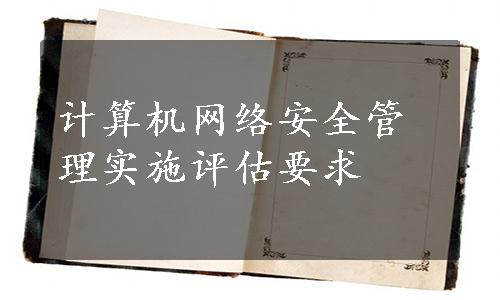 计算机网络安全管
理实施评估要求